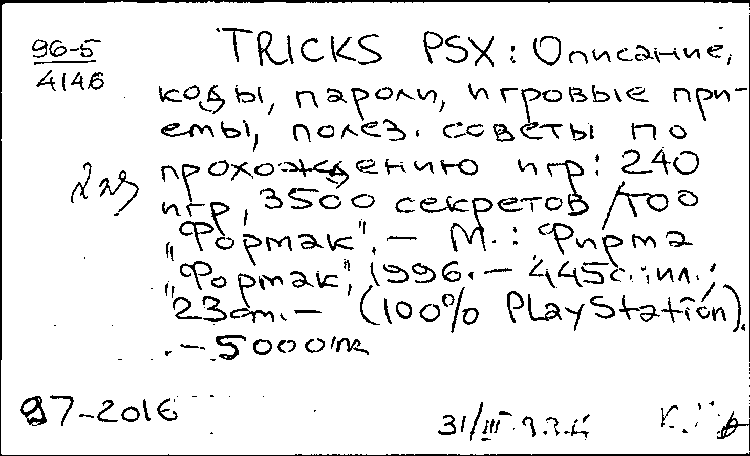 96-5
4146
TRICKS PSX: Описание,
коды, пароли, игровые при-
емы, полез. советы по
прохождению игр: 240
игр, 3500 секретов / ТОО
"Формак". - М.: Фирма
"Формак", 1996. - 445с.: ил.;
23cm. - (100% PlayStation).
. - 5000
97-2016
31/III